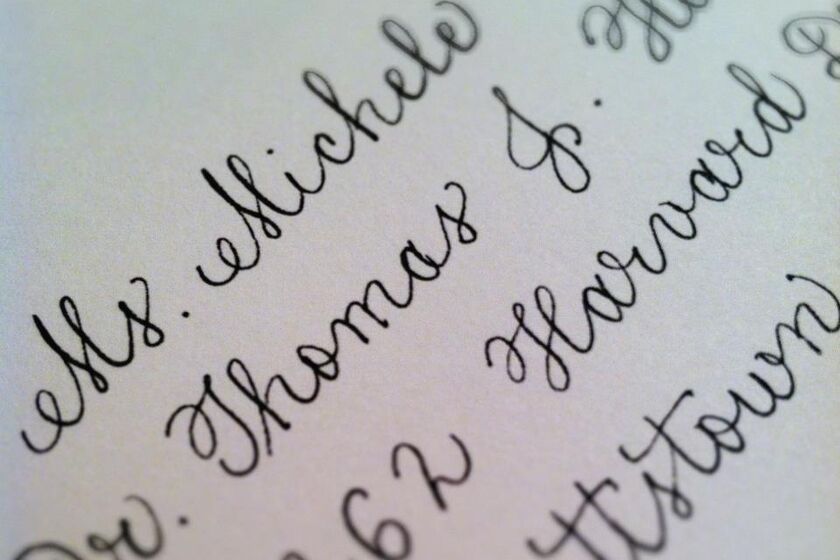 Ms. Michele
Dr. Thomas J.
62 Harvard
ttstown